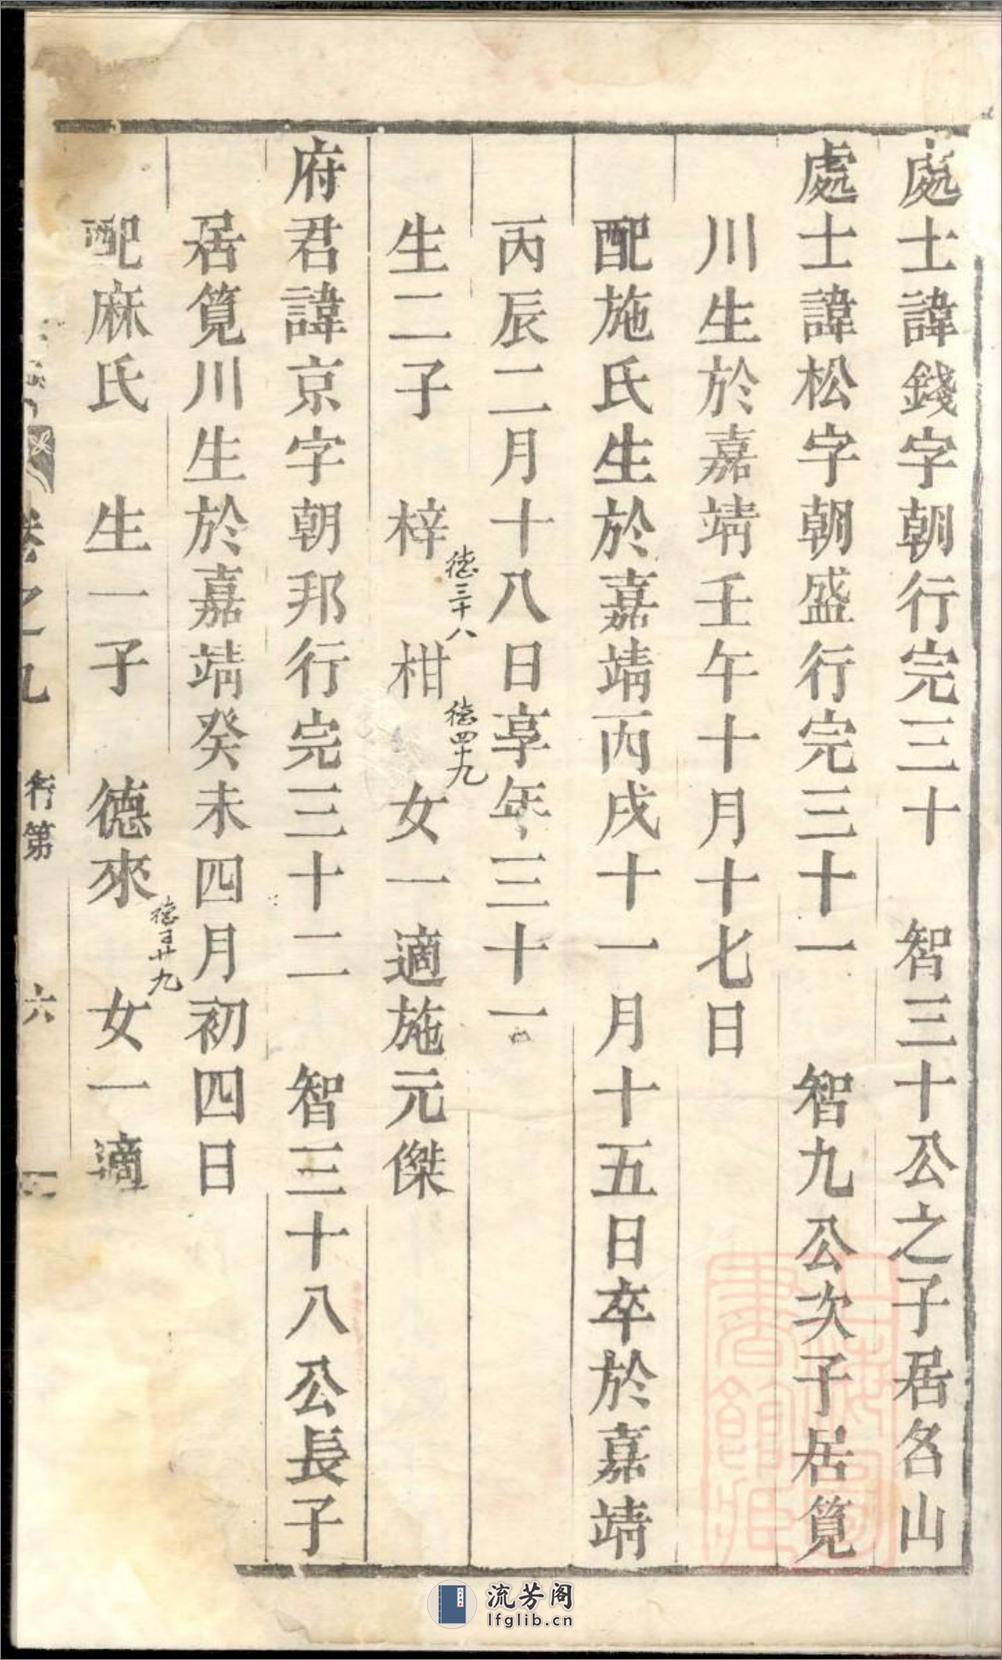 處士諱錢字朝行完三十　智三十公之子居名山
處士諱松字朝盛行完三十一　智九公次子居筧
川生於嘉靖壬午十月十七日
配施氏生於嘉靖丙戌十一月十五日卒於嘉靖
丙辰二月十八日享年三十一
生二子　梓　柑　女一適施元傑
德三十八
德四十九
府君諱京字朝邦行完三十二　智三十八公長子
居筧川生於嘉靖癸未四月初四日
配麻氏　生一子　德來　女一適
卷之九　行第　六
流芳阁
lfglib.cn